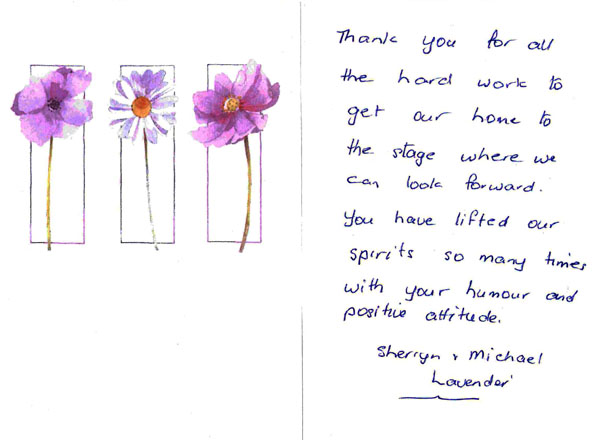 Thank you for all
the hard work to
get our home to
the stage where we
can look forward.
You have lifted our
spirits so many times
with your humour and
positive attitude.
Sherryn & Michael
Lavender